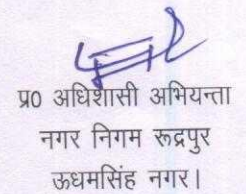 प्र0 अधिशासी अभियन्ता
नगर निगम रूद्रपुर
ऊधमसिंह नगर।